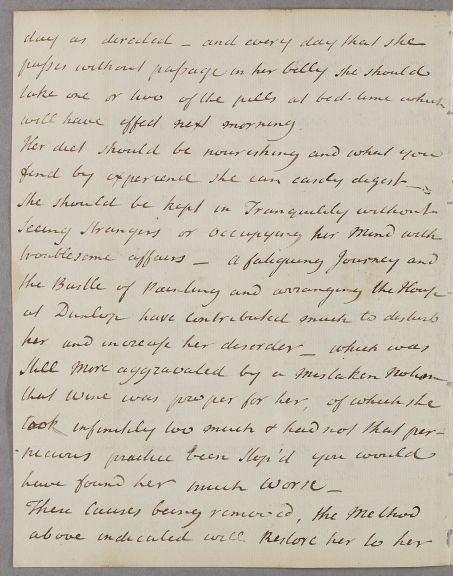 day as directed – and every day that she
passes without passage in her belly she should
take one or two of the pills at bed-time which
will have effect next morning.
Her diet should be nourishing and what you
find by experience she can easily digest –
She should be kept in Tranquility without
seeing strangers or occupying her Mind with
troublesome affairs – a fatiguing Journey and
the Bustle of Painting and arranging the House
at Dunlop have contributed much to disturb
her and increase her disorder – which was
still more aggravated by a mistaken Notion
that Wine was proper for her, of which she
took infinitely too much & had not that per-
nicious practice been stop'd you would
have found her much Worse –
These Causes being removed, the Method
above indicated will Restore her to her